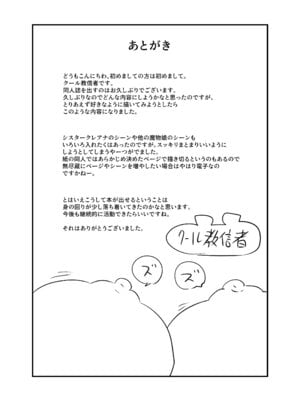 あとがき
どうもこんにちわ、初めましての方は初めまして。
クール教信者です。
同人誌を出すのはお久しぶりでございます。
久しぶりなのでどんな内容にしようかなと思ったのですが、
とりあえず好きなように描いてみようとしたら
このような内容になりました。
シスタークレアナのシーンや他の魔物娘のシーンも
いろいろ入れたくはあったのですが、スッキリまとまりいいように
しようとしてしまうやーつがでました。
紙の同人ではあらかじめ決めたページで描き切るというのもあるので
無尽蔵にページやシーンを増やしたい場合はやはり電子なの
ですかねー。
とはいえこうして本が出せるということは
身の回りが少し落ち着いてきたのかなと思います。
今後も継続的に活動できたらいいですね。
それはありがとうございました。
クール教信者
ズ
ズ